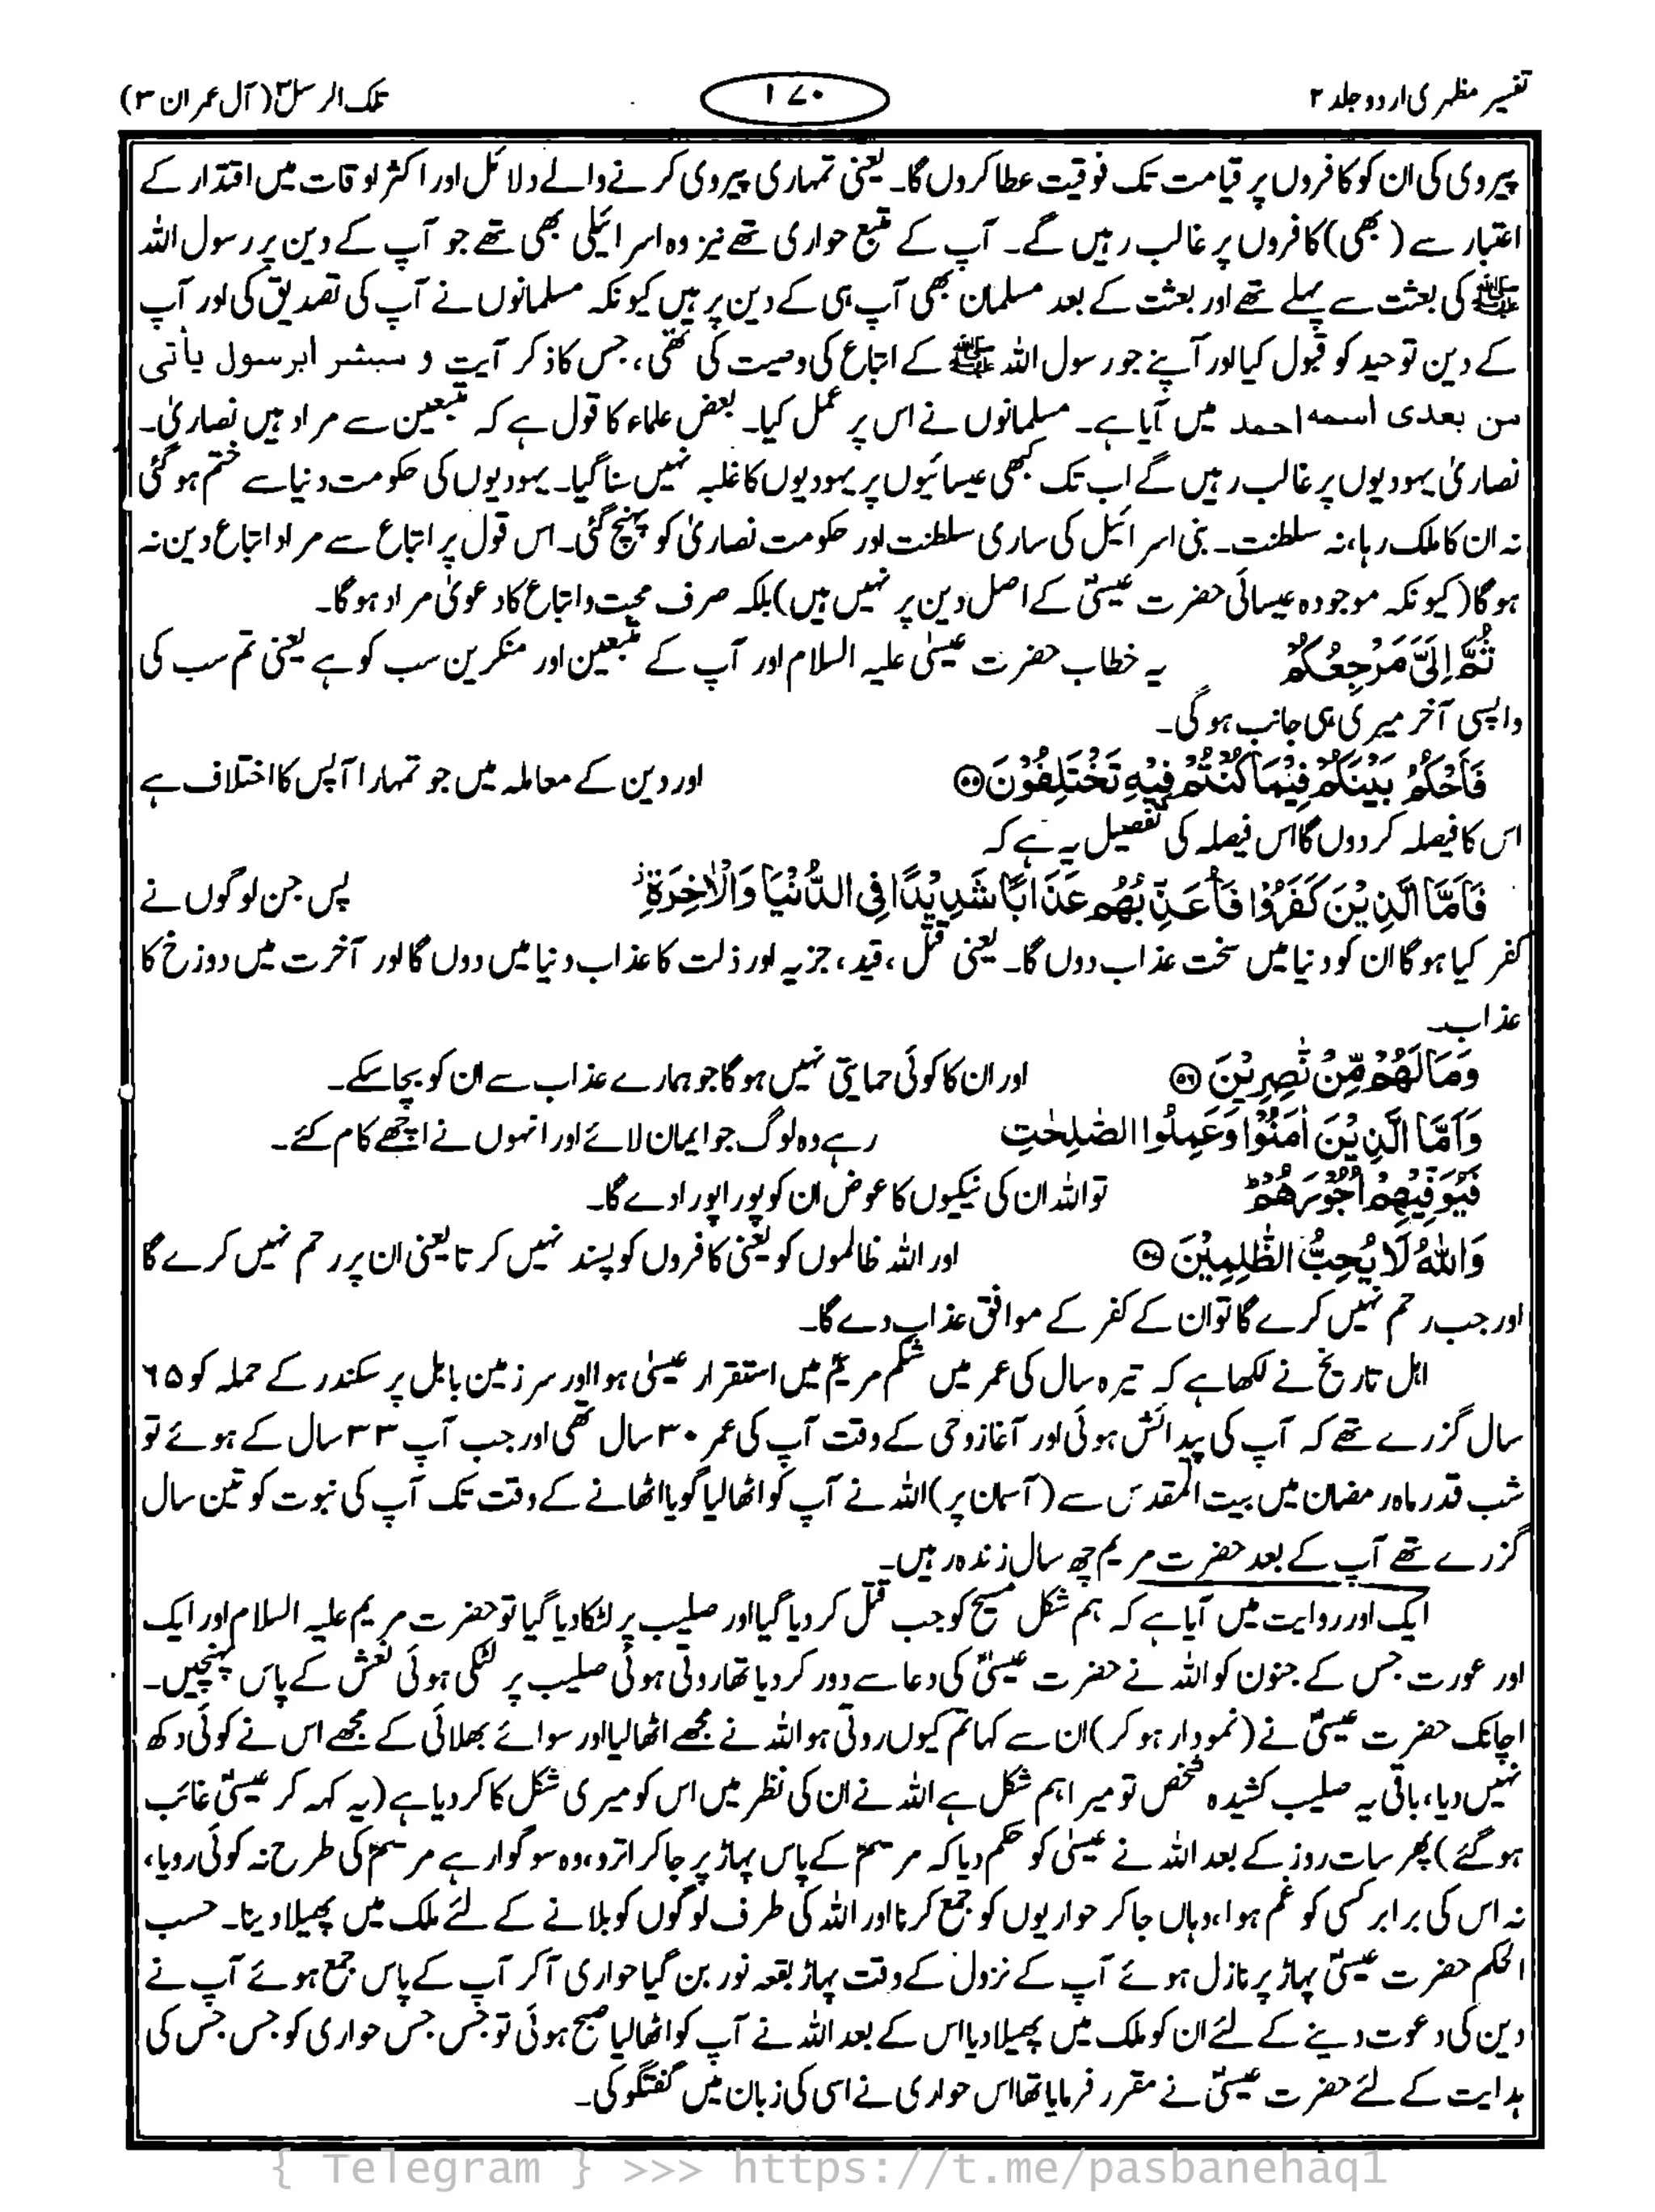 تفسیر مظہری اردو جلد ۲
۱۷۰
تلک الرسل ۳ (آل عمران ۳)
پیروی کی ان کو کافروں پر قیامت تک فوقیت عطا کروں گا۔ یعنی تمہاری پیروی کرنے والے دلائل اور اکثر اوقات میں اقتدار کے
اعتبار سے (بھی) کافروں پر غالب رہیں گے۔ آپ کے متبع حواری تھے نیز وہ اسرائیلی بھی تھے جو آپ کے دین پر رسول اللہ
ﷺ کی بعثت سے پہلے تھے اور بعثت کے بعد مسلمان بھی آپ ہی کے دین پر ہیں کیونکہ مسلمانوں نے آپ کی تصدیق کی اور آپ
کے دین توحید کو قبول کیا اور آپنے جو رسول اللہ ﷺ کے اتباع کی وصیت کی تھی، جس کا ذکر آیت و مبشر ابرسول یأتی
من بعدی اسمہ احمد میں آیا ہے۔ مسلمانوں نے اس پر عمل کیا۔ بعض علماء کا قول ہے کہ متبعین سے مراد ہیں نصاریٰ۔
نصاریٰ یہودیوں پر غالب رہیں گے اب تک کبھی عیسائیوں پر یہودیوں کا غلبہ نہیں سنا گیا۔ یہودیوں کی حکومت دنیا سے ختم ہو گئی
نہ ان کا ملک رہا، نہ سلطنت۔ بنی اسرائیل کی ساری سلطنت اور حکومت نصاریٰ کو پہنچ گئی۔ اس قول پر اتباع سے مراد اتباع دین نہ
ہو گا (کیونکہ موجودہ عیسائی حضرت عیسیٰؑ کے اصل دین پر نہیں ہیں) بلکہ صرف محبت و اتباع کا دعویٰ مراد ہو گا۔
ثُمَّ اِلَیَّ مَرْجِعُکُمْ یہ خطاب حضرت عیسیٰ علیہ السلام اور آپ کے متبعین اور منکرین سب کو ہے یعنی تم سب کی
واپسی آخر میری ہی جانب ہو گی۔
فَاَحْکُمُ بَیْنَکُمْ فِیْمَا کُنْتُمْ فِیْهِ تَخْتَلِفُوْنَ ۵۵ اور دین کے معاملہ میں جو تمہارا آپس کا اختلاف ہے
اس کا فیصلہ کر دوں گا اس فیصلہ کی تفصیل یہ ہے کہ
فَاَمَّا الَّذِیْنَ کَفَرُوْا فَاُعَذِّبُهُمْ عَذَابًا شَدِیْدًا فِی الدُّنْیَا وَالْاٰخِرَةِ پس جن لوگوں نے
کفر کیا ہو گا ان کو دنیا میں سخت عذاب دوں گا۔ یعنی قتل، قید، جزیہ اور ذلت کا عذاب دنیا میں دوں گا اور آخرت میں دوزخ کا
عذاب۔
وَمَا لَهُمْ مِّنْ نّٰصِرِیْنَ ۵۶ اور ان کا کوئی حمایتی نہیں ہو گا جو ہمارے عذاب سے ان کو بچا سکے۔
وَاَمَّا الَّذِیْنَ اٰمَنُوْا وَعَمِلُوا الصّٰلِحٰتِ رہے وہ لوگ جو ایمان لائے اور انہوں نے اچھے کام کئے۔
فَیُوَفِّیْهِمْ اُجُوْرَهُمْ ؕ تو اللہ ان کی نیکیوں کا عوض ان کو پورا پورا دے گا۔
وَاللّٰهُ لَا یُحِبُّ الظّٰلِمِیْنَ ۵۷ اور اللہ ظالموں کو یعنی کافروں کو پسند نہیں کرتا یعنی ان پر رحم نہیں کرے گا
اور جب رحم نہیں کرے گا تو ان کے کفر کے موافق عذاب دے گا۔
اہل تاریخ نے لکھا ہے کہ تیرہ سال کی عمر میں شکم مریمؑ میں استقرار عیسیٰ ہوا اور سرزمین بابل پر سکندر کے حملہ کو ۶۵
سال گزرے تھے کہ آپ کی پیدائش ہوئی اور آغاز وحی کے وقت آپ کی عمر ۳۰ سال تھی اور جب آپ ۳۳ سال کے ہوئے تو
شب قدر ماہ رمضان میں بیت المقدس سے (آسمان پر) اللہ نے آپ کو اٹھا لیا گویا اٹھانے کے وقت تک آپ کی نبوت کو تین سال
گزرے تھے آپ کے بعد حضرت مریم چھ سال زندہ رہیں۔
ایک اور روایت میں آیا ہے کہ ہم شکل مسیح کو جب قتل کر دیا گیا اور صلیب پر لٹکا دیا گیا تو حضرت مریم علیہ السلام اور ایک
اور عورت جس کے جنون کو اللہ نے حضرت عیسیٰؑ کی دعا سے دور کر دیا تھا روتی ہوئی صلیب پر لٹکی ہوئی نعش کے پاس پہنچیں۔
اچانک حضرت عیسیٰؑ نے (نمودار ہو کر) ان سے کہا تم کیوں روتی ہو اللہ نے مجھے اٹھا لیا اور سوائے بھلائی کے مجھے اس نے کوئی دکھ
نہیں دیا، باقی یہ صلیب کشیدہ شخص تو میرا ہم شکل ہے اللہ نے ان کی نظر میں اس کو میری شکل کا کر دیا ہے (یہ کہہ کر عیسیٰؑ غائب
ہو گئے) پھر سات روز کے بعد اللہ نے عیسیٰ کو حکم دیا کہ مریمؑ کے پاس پہاڑ پر جا کر اترو، وہ سوگوار ہے مریمؑ کی طرح نہ کوئی رویا،
نہ اس کی برابر کسی کو غم ہوا، وہاں جا کر حواریوں کو جمع کرنا اور اللہ کی طرف لوگوں کو بلانے کے لئے ملک میں پھیلا دینا۔ حسب
الحکم حضرت عیسیٰؑ پہاڑ پر نازل ہوئے آپ کے نزول کے وقت پہاڑ بقعہ نور بن گیا حواری آکر آپ کے پاس جمع ہوئے آپ نے
دین کی دعوت دینے کے لئے ان کو ملک میں پھیلا دیا اس کے بعد اللہ نے آپ کو اٹھا لیا صبح ہوئی تو جس جس حواری کو جس جس کی
ہدایت کے لئے حضرت عیسیٰؑ نے مقرر فرمایا تھا اس حواری نے اسی کی زبان میں گفتگو کی۔
{ Telegram } >>> https://t.me/pasbanehaq1